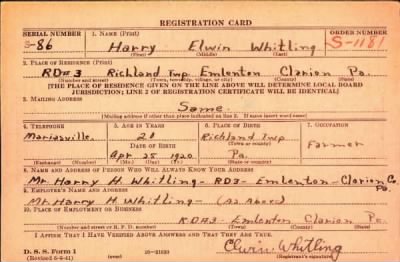 REGISTRATION CARD
SERIAL NUMBER 1. NAME (Print) ORDER NUMBER
S-86 Harry Elwin Whitling S-1181
(First) (Middle) (Last)
2. PLACE OF RESIDENCE (Print)
RD#3 Richland Twp. Emlenton Clarion Pa.
(Number and street) (Town, township, village, or city) (County) (State)
[THE PLACE OF RESIDENCE GIVEN ON THE LINE ABOVE WILL DETERMINE LOCAL BOARD
JURISDICTION; LINE 2 OF REGISTRATION CERTIFICATE WILL BE IDENTICAL]
3. MAILING ADDRESS
Same.
[Mailing address if other than place indicated on line 2. If same insert word same]
4. TELEPHONE 5. AGE IN YEARS 6. PLACE OF BIRTH 7. OCCUPATION
Mariasville 21 Richland Twp
DATE OF BIRTH (Town or county) Farmer
Apr 25 1920 Pa.
(Mo.) (Day) (Yr.) (State or country)
8. NAME AND ADDRESS OF PERSON WHO WILL ALWAYS KNOW YOUR ADDRESS
Mr. Harry H. Whitling - RD3 - Emlenton - Clarion Co. Pa.
9. EMPLOYER'S NAME AND ADDRESS
Mr. Harry H Whitling - (As Above)
10. PLACE OF EMPLOYMENT OR BUSINESS
RD#3 - Emlenton Clarion Pa.
(Number and street or R. F. D. number) (Town) (County) (State)
I AFFIRM THAT I HAVE VERIFIED ABOVE ANSWERS AND THAT THEY ARE TRUE.
D. S. S. Form 1 Elwin Whitling
(Revised 6-9-41) (over) 16-21630 (Registrant's signature)